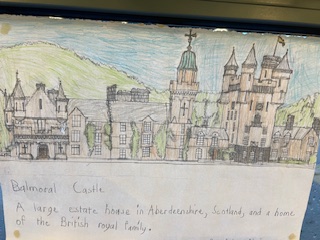 Balmoral Castle
A large estate house in Aberdeenshire, Scotland, and a home
of the British royal family.